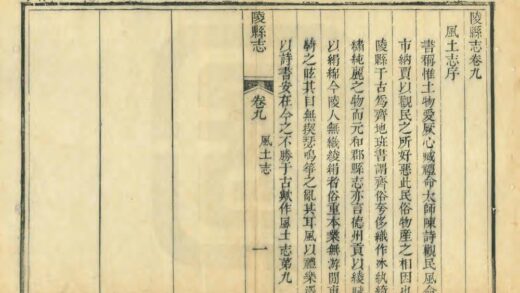 陵縣志卷九
風土志序
書稱惟土物愛厥心臧禮命太師陳詩觀民風命
市納賈以觀民之所好惡此民俗物產之相因也
陵縣于古爲齊地班書謂齊俗夸侈織作冰紈綺
繡純麗之物而元和郡縣志亦言德州貢以綾賦
以絹綿今陵人無織綾絹者俗重本業無游閒車
騎之眩其目無猰瑟鳴箏之亂其耳風以禮樂
以詩書安在今之不勝于古歟作風土志第九
陵縣志
卷九
風土志
一